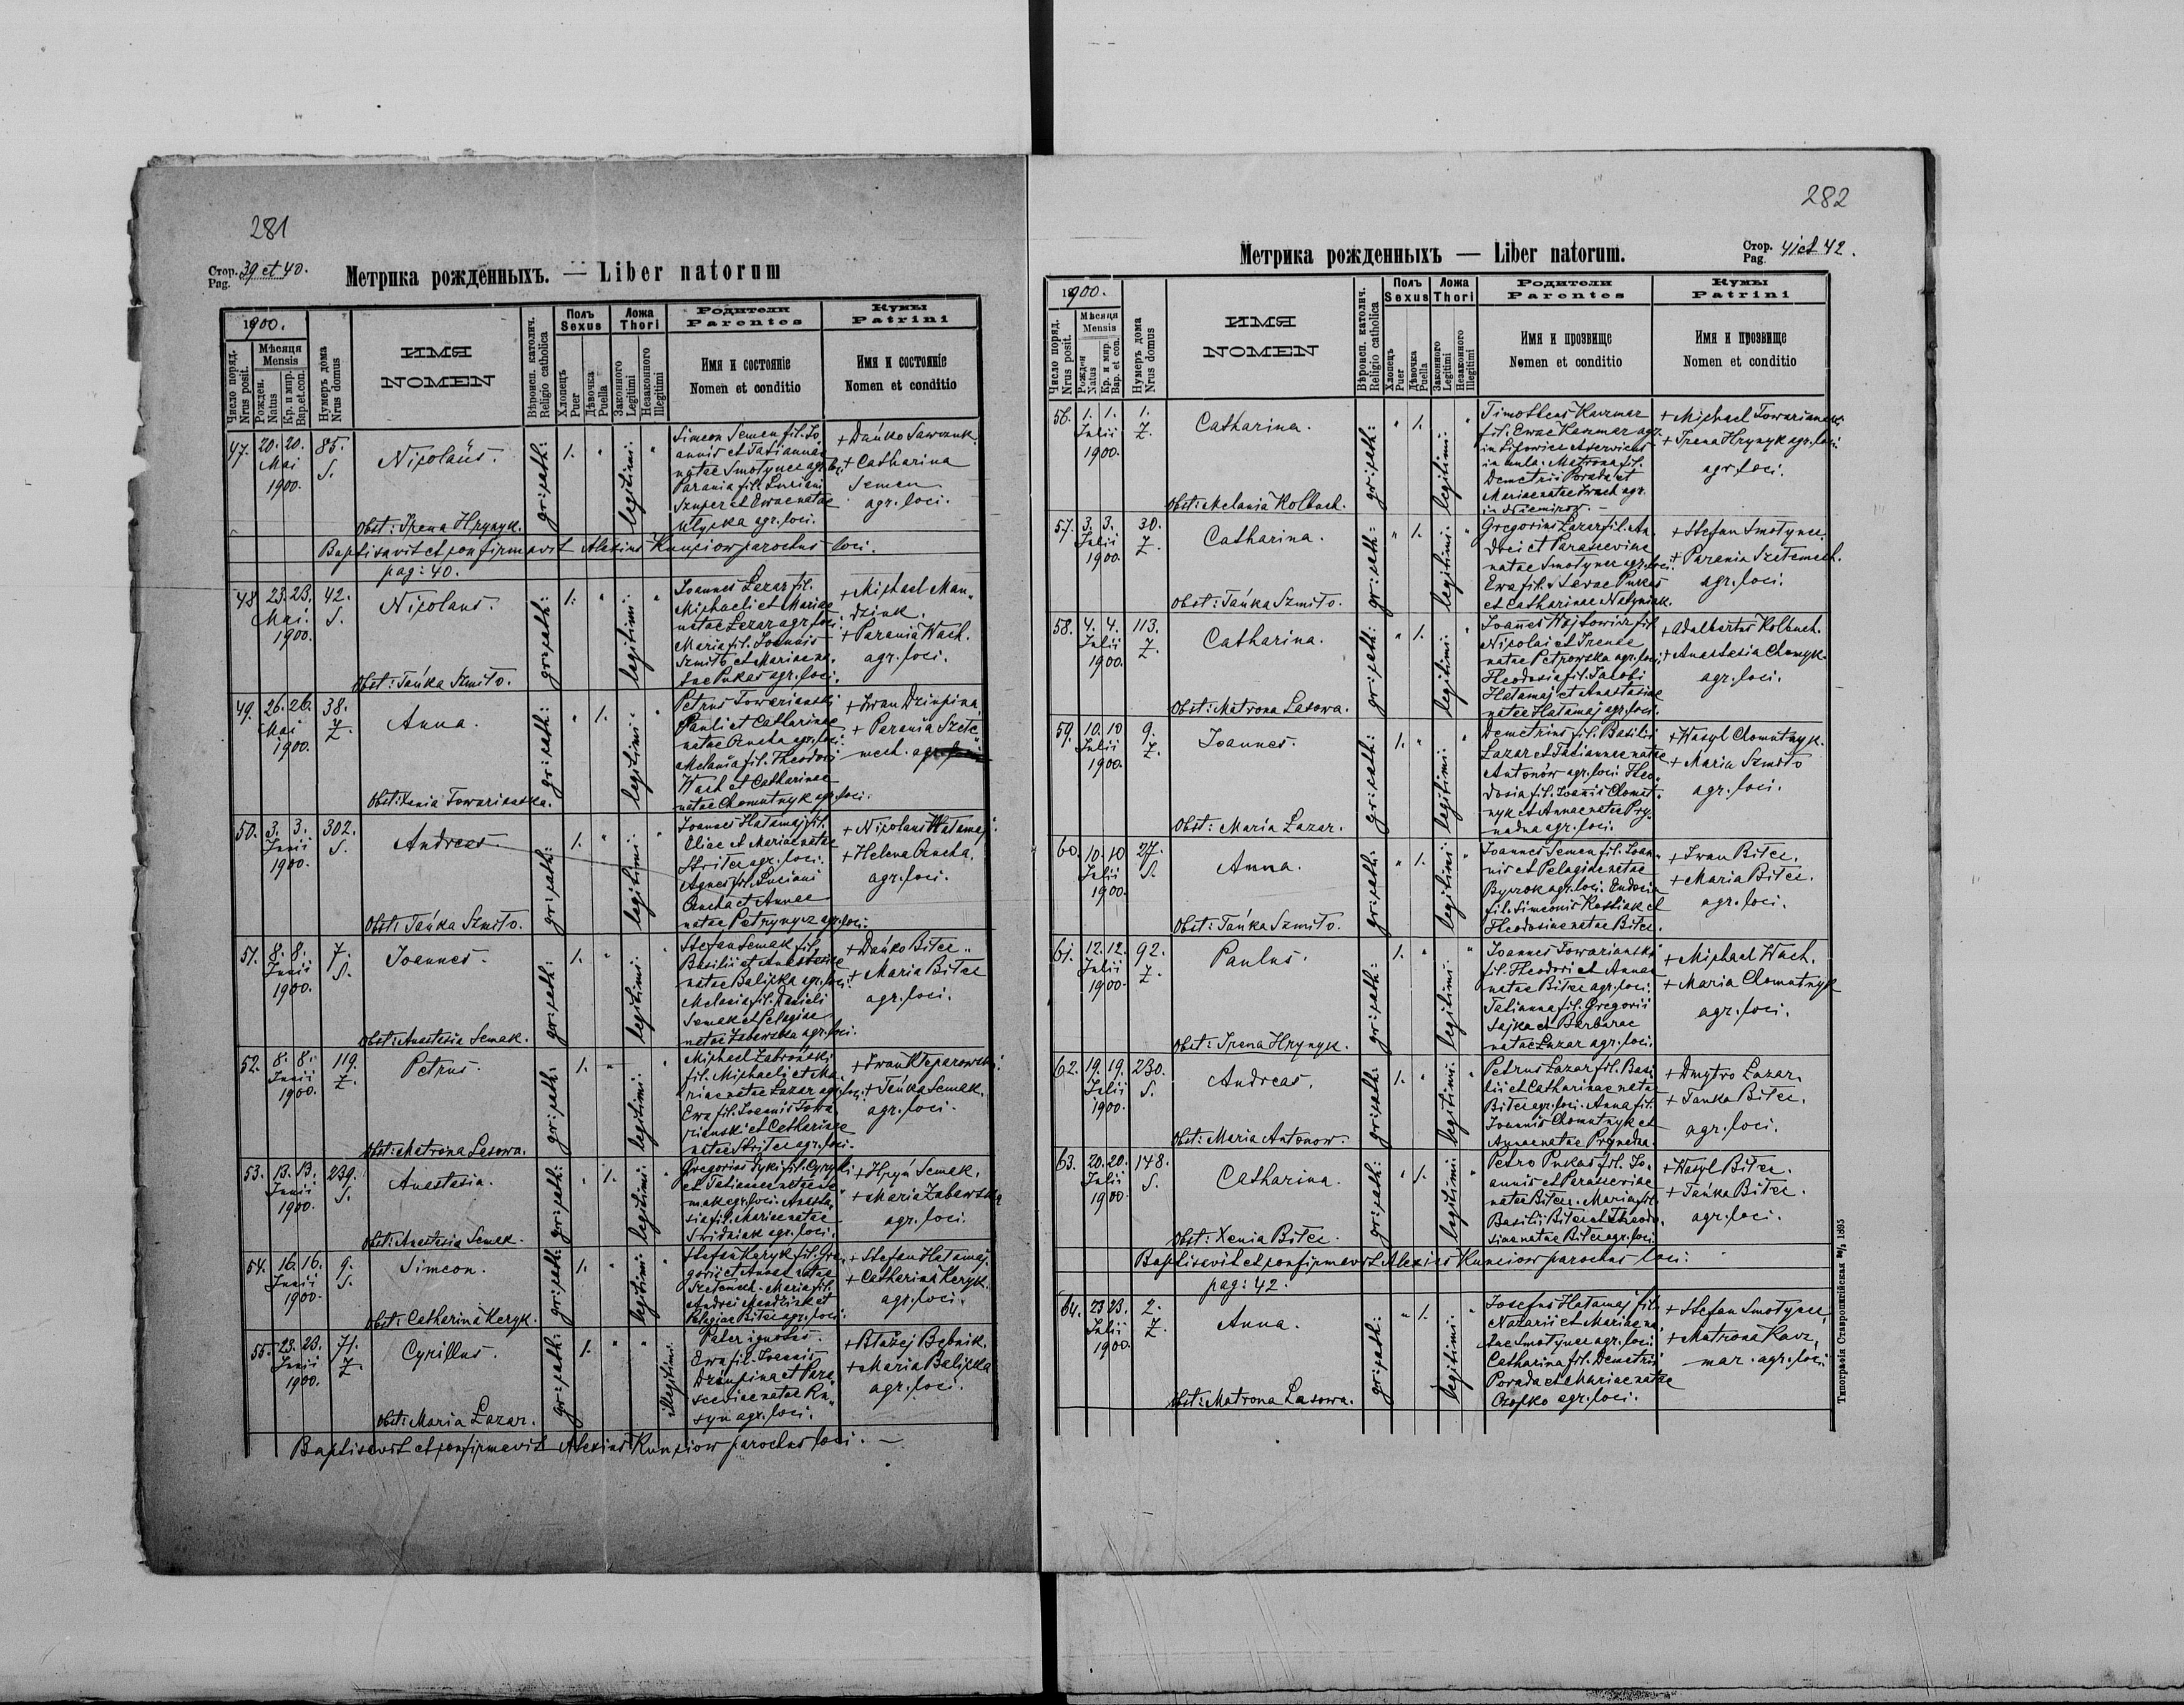 281
Стор. Pag. 39 et 40.
Метрика рожденныхъ. — Liber natorum
1900.
Число поряд. Nrus posit.
Мѣсяця Mensis
Рожден. Natus
Кр. и мир. Bap. et con.
Нумеръ дома Nrus domus
ИМЯ
NOMEN
Вѣроисп. католич. Religio catholica
Полъ Sexus
Хлопецъ Puer
Дѣвочка Puella
Ложа Thori
Законного Legitimi
Незаконного Illegitimi
Родители
Parentes
Имя и состояніе
Nomen et conditio
Кумы
Patrini
Имя и состояніе
Nomen et conditio
47. 20. 20. Mai 1900. 85. S.
Nicolaus.
gr: cath: 1. " legitimi: "
Simeon Semen fil. Jo
annis et Tatiannae
natae Smotynec agr. loci
Parania fil. Luciani
Szuper et Ewae natae
agr. loci.
+ Dańko Sawczuk.
+ Catharina
Semen
agr. loci.
Obst: Irena Hrynyk.
Baptisavit et confirmavit Alexius Kunciow parochus loci.
pag: 40.
48. 23. 23. Mai. 1900. 42. S.
Nicolaus.
gr: cath: 1. " legitimi: "
Joannes Lazar fil.
Michaeli et Mariae
natae Lazar agr. loci.
Maria fil. Joannis
Szmito et Mariae na„
tae Pukas agr. loci.
+ Michael Man„
dziuk.
+ Parania Wach.
agr. loci.
Obst: Tańka Szmito.
49. 26. 26. Mai 1900. 38. Z.
Anna.
gr: cath: " 1. legitimi: "
Petrus Towarianski
Pauli et Catharinae
natae Oneha agr. loci.
Melania fil. Theodori
Wach et Catharinae
natae Chomutnyk agr. loci.
+ Iwan Dziupina,
+ Parania Szete„
mech. agr. loci
Obst: Xenia Towarianska.
50. 3. 3. Junii 1900. 302. S.
Andreas.
gr: cath: 1. " legitimi: "
Joannes Hatamaj fil.
Eliae et Mariae natae
Stritec agr. loci.
Agnes fil. Luciani
Oneha et Annae
natae Petrynycz agr. loci.
+ Nicolaus Hatamaj.
+ Helena Oneha.
agr. loci.
Obst: Tańka Szmito.
51. 8. 8. Junii 1900. 7. S.
Joannes.
gr: cath: 1. " legitimi: "
Stefan Semak fil.
Basilii et Anastasiae
natae Balicka agr. loci.
Melania fil. Danieli
Semak et Pelagiae
natae Zabawska agr. loci.
+ Dańko Bitec„
+ Maria Bitec
agr. loci.
Obst: Anastasia Semak.
52. 8. 8. Junii 1900. 119. Z.
Petrus.
gr: cath: 1. " legitimi: "
Michael Zatoński
fil. Michaeli et Ma„
riae natae Lazar agr. loci.
Ewa fil. Joannis Towa
rianski et Catharinae
natae Stritec agr. loci.
+ Iwan Kleparowski.
+ Tańka Semak.
agr. loci.
Obst: Matrona Lasowa.
53. 13. 13. Junii 1900. 239. S.
Anastasia.
gr: cath: " 1. legitimi: "
Gregorius Dyki fil. Cyrylli
et Tatianae natae Se„
mak agr. loci. Anasta„
sia fil. Mariae natae
Swidniak agr. loci.
+ Hryń Semak.
+ Maria Zabawska
agr. loci.
Obst: Anastasia Semak.
54. 16. 16. Junii 1900. 9. S.
Simeon.
gr: cath: 1. " legitimi: "
Stefan Keryk fil. Gre„
gorii et Annae natae
Szetemech. Maria fil.
Andrei Mandziuk et
Pelagiae Bitec agr. loci.
+ Stefan Hatamaj.
+ Catharina Keryk.
agr. loci.
Obst: Catharina Keryk.
55. 23. 23. Junii 1900. 71. Z.
Cyrillus.
gr: cath: 1. " " illegitimi:
Pater ignotus.
Ewa fil. Joannis
Dziupina et Para„
scewiae natae Ru„
syn agr. loci.
+ Błażej Bębnik.
+ Maria Balicka
agr. loci.
Obst: Maria Lazar.
Baptisavit et confirmavit Alexius Kunciow parochus loci. —
282
Стор. Pag. 41 et 42.
Метрика рожденныхъ — Liber natorum.
1900.
Число поряд. Nrus posit.
Мѣсяця Mensis
Рожден Natus
Кр. и мир. Bap. et con.
Нумеръ дома Nrus domus
ИМЯ
NOMEN
Вѣроисп. католич. Religio catholica
Полъ Sexus
Хлопецъ Puer
Дѣвочка Puella
Ложа Thori
Законного Legitimi
Незаконного Illegitimi
Родители
Parentes
Имя и прозвище
Nomen et conditio
Кумы
Patrini
Имя и прозвище
Nomen et conditio
56. 1. 1. Julii 1900. 1. Z.
Catharina.
gr: cath: " 1. legitimi: "
Timotheus Kaczmar
fil. Ewae Kaczmar agr.
in Lipowiec et serviens
in aula. Matrona fil.
Demetrii Porada et
Mariae natae Iwach agr.
in Niemirow. —
+ Michael Towarianski.
+ Irena Hrynyk agr. loci.
agr. loci.
Obst: Melania Kolbuch.
57. 3. 3. Julii 1900. 30. Z.
Catharina.
gr: cath: " 1. legitimi: "
Gregorius Lazar fil. An„
drei et Parasceviae
natae Smotynec agr. loci.
Ewa fil. Sawae Pukas
et Catharinae Natyniak.
+ Stefan Smotynec.
+ Parania Szetemech.
agr. loci.
Obst: Tańka Szmito.
58. 4. 4. Julii 1900. 113. Z.
Catharina.
gr: cath: " 1. legitimi: "
Joannes Wojtowicz fil.
Nicolai et Irenae
natae Petrowska agr. loci.
Theodosia fil. Jacobi
Hatamaj et Anastasiae
natae Hatamaj agr. loci.
+ Adalbertus Kolbuch.
+ Anastasia Chomyk.
agr. loci.
Obst: Matrona Lasowa.
59. 10. 10 Julii 1900. 9. Z.
Joannes.
gr: cath: 1. " legitimi: "
Demetrius fil. Basilii
Lazar et Tatiannae natae
Antonów agr. loci. Theo„
dosia fil. Joannis Chomut„
nyk et Annae natae Pry„
nadna agr. loci.
+ Wasyl Chomutnyk.
+ Maria Szmito
agr. loci.
Obst: Maria Lazar.
60. 10. 10 Julii 1900. 27. S.
Anna.
gr: cath: " 1. legitimi: "
Joannes Semen fil. Joan„
nis et Pelagiae natae
Byczok agr. loci. Eudocia
fil. Simeonis Kostiak et
Theodosiae natae Bitec.
+ Iwan Bitec.
+ Maria Bitec.
agr. loci.
Obst: Tańka Szmito.
61. 12. 12. Julii 1900. 92. Z.
Paulus.
gr: cath: 1. " legitimi: "
Joannes Towarianski
fil. Theodori et Annae
natae Bitec agr. loci.
Tatianna fil. Gregorii
Sajka et Barbarae
natae Lazar agr. loci.
+ Michael Wach.
+ Maria Chomutnyk
agr. loci.
Obst: Irena Hrynyk.
62. 19. 19. Julii 1900. 230. S.
Andreas.
gr: cath: 1. " legitimi: "
Petrus Lazar fil. Basi
lii et Catharinae natae
Bitec agr. loci. Anna fil.
Joannis Chomutnyk et
Annae natae Prynadna.
+ Dmytro Lazar.
+ Tańka Bitec.
agr. loci.
Obst: Maria Antonow.
63. 20. 20. Julii 1900 148. S.
Catharina.
gr: cath: " 1. legitimi: "
Petro Pukas fil. Jo„
annis et Parasceviae
natae Bitec. Maria fil.
Basilii Bitec et Theodo„
siae natae Bitec agr. loci.
+ Wasyl Bitec.
+ Tańka Bitec.
agr. loci.
Obst: Xenia Bitec.
Baptisavit et confirmavit Alexius Kunciow parochus loci.
pag: 42.
64. 23 23. Julii 1900. 2. Z.
Anna.
gr: cath: " 1. legitimi: "
Josefus Hatamaj fil.
Nazarii et Mariae na„
tae Smotynec agr. loci.
Catharina fil. Demetrii
Porada et Mariae natae
Czopko agr. loci.
+ Stefan Smotynec,
+ Matrona Kacz„
mar. agr. loci.
Obst: Matrona Lasowa.
Типографія Ставропигійская 1895